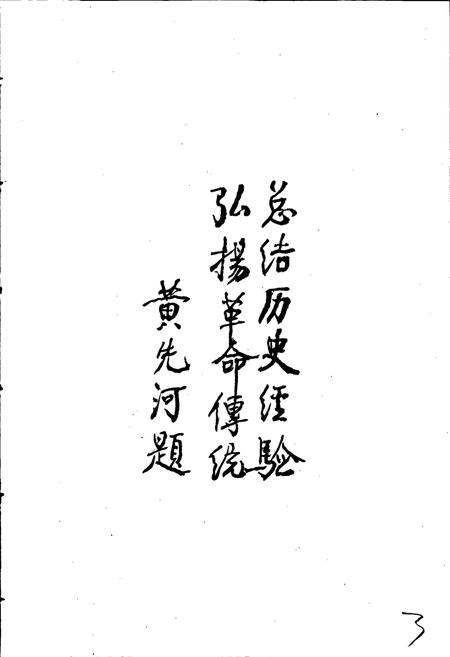 总结历史经验
弘揚革命傳统
黄先河題
3